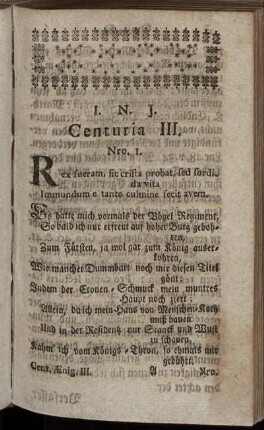 I. N. J.
Centuria III.
Nro. 1.
Rex fueram, sic crista probat, sed sordi-
da vita
Immundum e tanto culmine fecit avem.
Es hatte mich vormals der Vögel Regiment,
So bald ich nur erfreut auf hoher Burg gebohren,
Zum Fürsten, ja wol gar zum König auser-
kohren,
Wie mancher Dummbart noch mir diesen Titel
gönt;
Indem der Cronen-Schmuck mein muntres
Haupt noch ziert:
Allein, da ich mein Haus von Menschen-Koth
muß bauen
Und in der Residentz nur Stanck und Wust
zu schauen,
Kahm ich vom Königs-Thron, so ehmals mir
gebührt.
Cent. Ænig. III. A Nro.